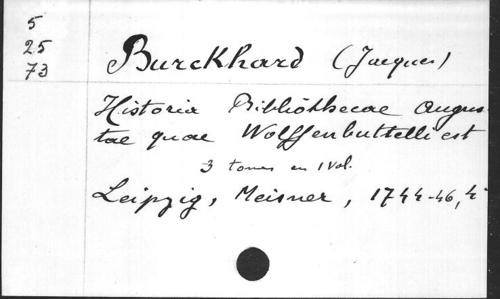 5
25
73
Burckhard (Jacques)
Historia Bibliothecae Augus
tae quae Wolffenbuttelli est
3 tomes en 1 vol.
Leipzig, Meisner, 1744-46, 4°